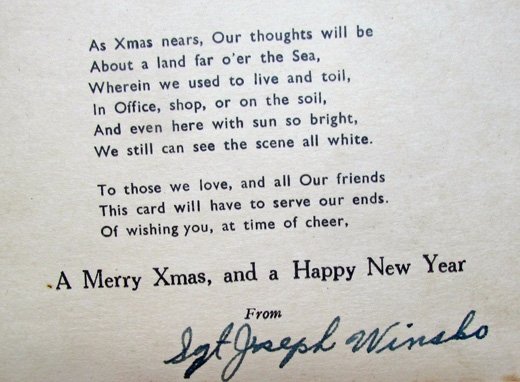 As Xmas nears, Our thoughts will be
About a land far o'er the Sea,
Wherein we used to live and toil,
In Office, shop, or on the soil,
And even here with sun so bright,
We still can see the scene all white.
To those we love, and all Our friends
This card will have to serve our ends.
Of wishing you, at time of cheer,
A Merry Xmas, and a Happy New Year
From
Sgt Joseph Winsko